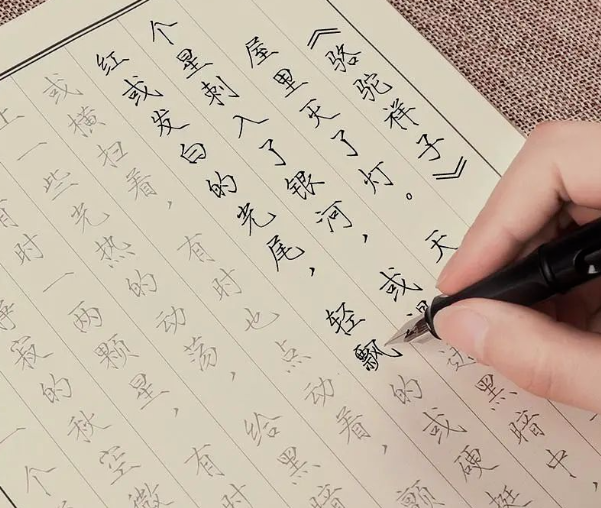 《骆驼祥子》
屋里灭了灯。天
个星刺入了银河，或划进黑暗中，
红或发白的光尾，轻飘的或硬挺
或横扫着，有时也点动着，颤
上一些光热的动荡，给黑暗
有时一两颗星，有时
寂的秋空微
一个